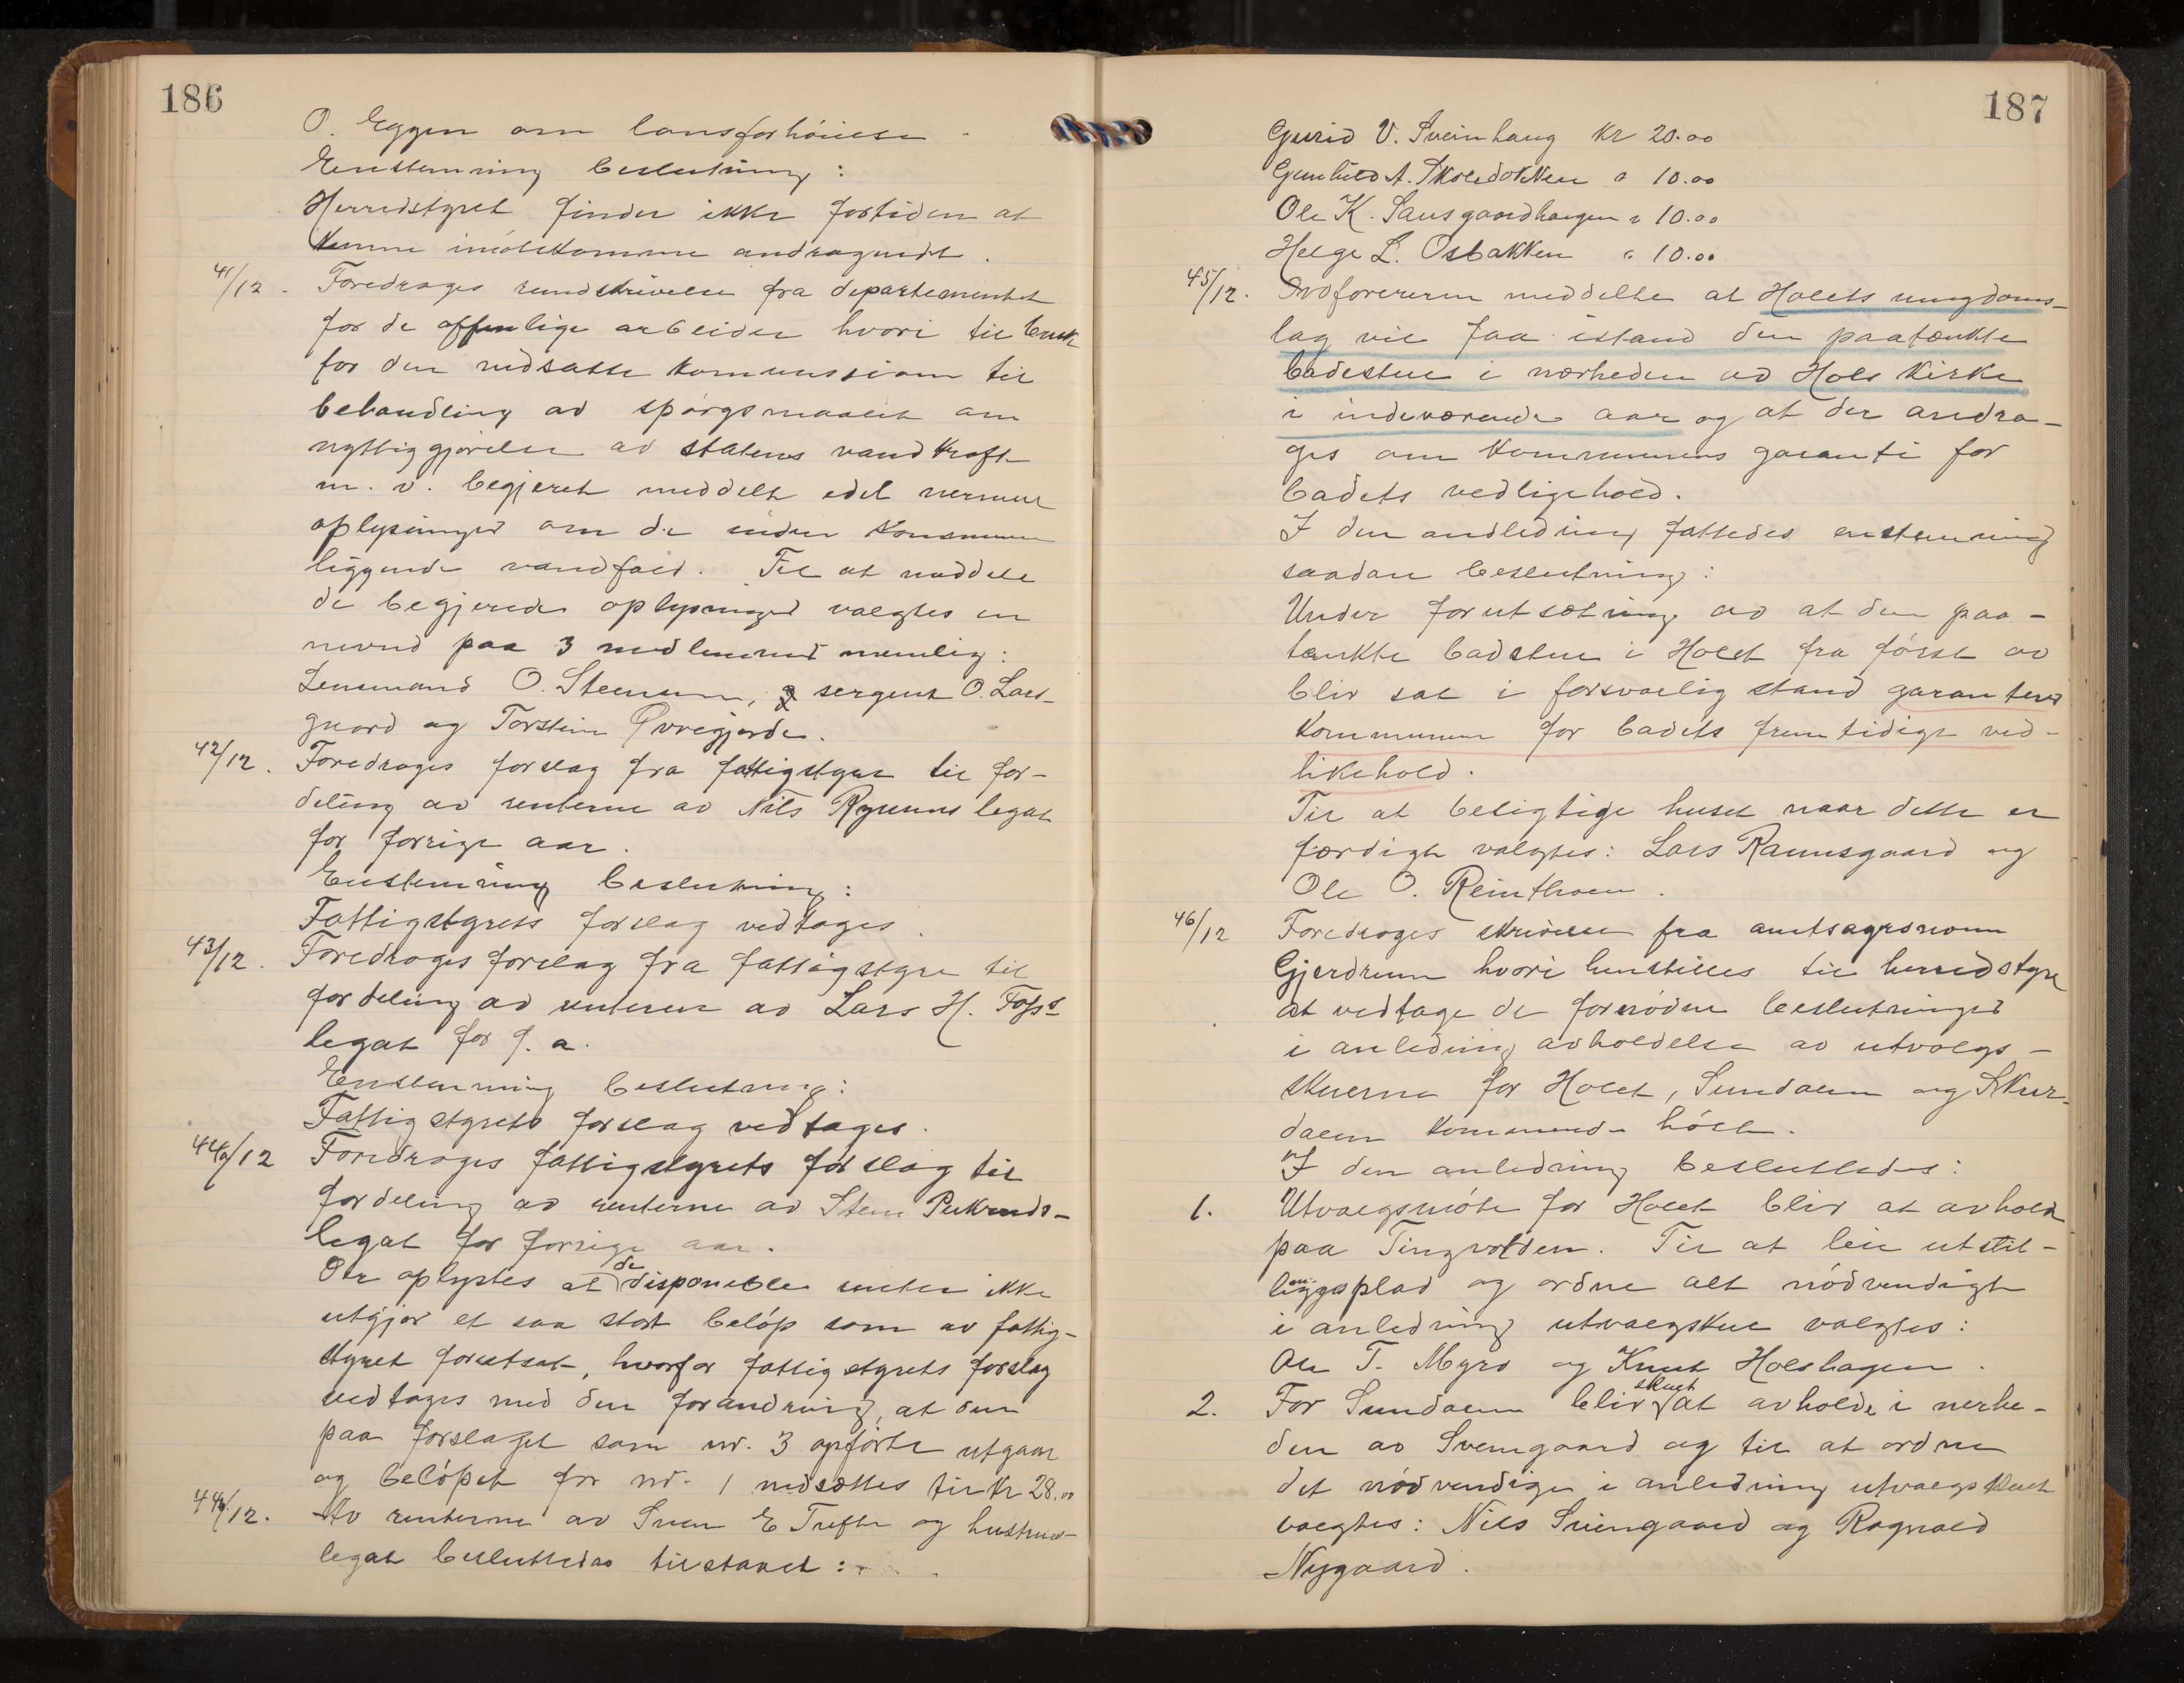 186
O. Eggen om lønsforhöielse
Enstemming beslutning:
Herredstyret finder ikke fortiden at
kunne imötekomme andragendet.
41/12. Foredrages rundskrivelse fra departementet
for de offenlige arbeider hvori til bruk
for den nedsatte kommission til
behandling av spörgsmaalet om
nyttiggjörelse av statens vandkraft
m. v. begjeret meddelt edel nermere
oplysninger om de inden kommunen
liggende vandfald. Til at meddele
de begjerede oplysninger valgtes en
nevnd paa 3 medlemmer nemlig:
Lensmand O. Stensen, sergent O. Lars-
gaard og Torstein Øvregjerde.
42/12. Foredrages forslag fra fattigstyre til for-
deling av renterne av Nils Rymens legat
for forrige aar.
Enstemming beslutning:
Fattigstyrets forslag vedtages.
43/12. Foredrages forslag fra fattigstyre til
fordeling av renterne av Lars H. Foss
legat for f. a.
Enstemming beslutning:
Fattigstyrets forslag vedtages.
44a/12 Foredrages fattigstyrets forslag til
fordeling av renterne av Sten Pukeruds-
legat for forrige aar.
Der oplystes at de disponible renter ikke
utgjör et saa stort belöp som av fattig-
styret forutsat, hvorfor fattigstyrets forslag
vedtages med den forandring, at den
paa forslaget som nr. 3 opförte utgaar
og belöpet for nr. 1 nedsættes til kr 28.00
44b/12. Av renterne av Sven E Tufte og hustrus-
legat besluttedes tilstaaet:
187
Gurid V. Sveinhaug kr 20.00
Gunhild A. Skoledokken " 10.00
Ole K. Sausgaardhaugen " 10.00
Helge L. Osbakken " 10.00
45/12. Ordförereren meddelte at Holets ungdoms-
lag vil faa istand den paatænkte
badestue i nærheden av Hols kirke
i indeværende aar og at der andra-
ges om kommunens garanti for
badets vedligehold.
I den andledning fattedes enstemmig
saadan beslutning:
Under forutsetning av at den paa-
tænkte badstue i Holet fra först av
blir sat i forsvarlig stand garanterer
kommunen for badets fremtidige ved-
likehold.
Til at besigtige huset naar dette er
færdigt valgtes: Lars Raunsgaard og
Ole O. Reinthoen.
46/12 Foredrages skrivelse fra amtsagronom
Gjerdrum hvori henstilles til herredstyre
at vedtage de fornödne beslutninger
i anledning avholdelse av utvalgs-
skuerne for Holet, Sundalen og Skur-
dalen kommende höst.
I den anledning besluttedes:
1. Utvalgsmöte for Holet blir at avhold
paa Tingvolden. Til at leie utstil-
lingsplad og ordne alt nödvendigt
i anledning utvalgskue valgtes:
Ole T. Myro og Knut Holshagen.
2. For Sundalen blir skuet at avholde i nerhe-
den av Svengaard og til at ordne
det nödvendige i anledning utvalgskuet
valgtes: Nils Svengaard og Ragnald
Nygaard.